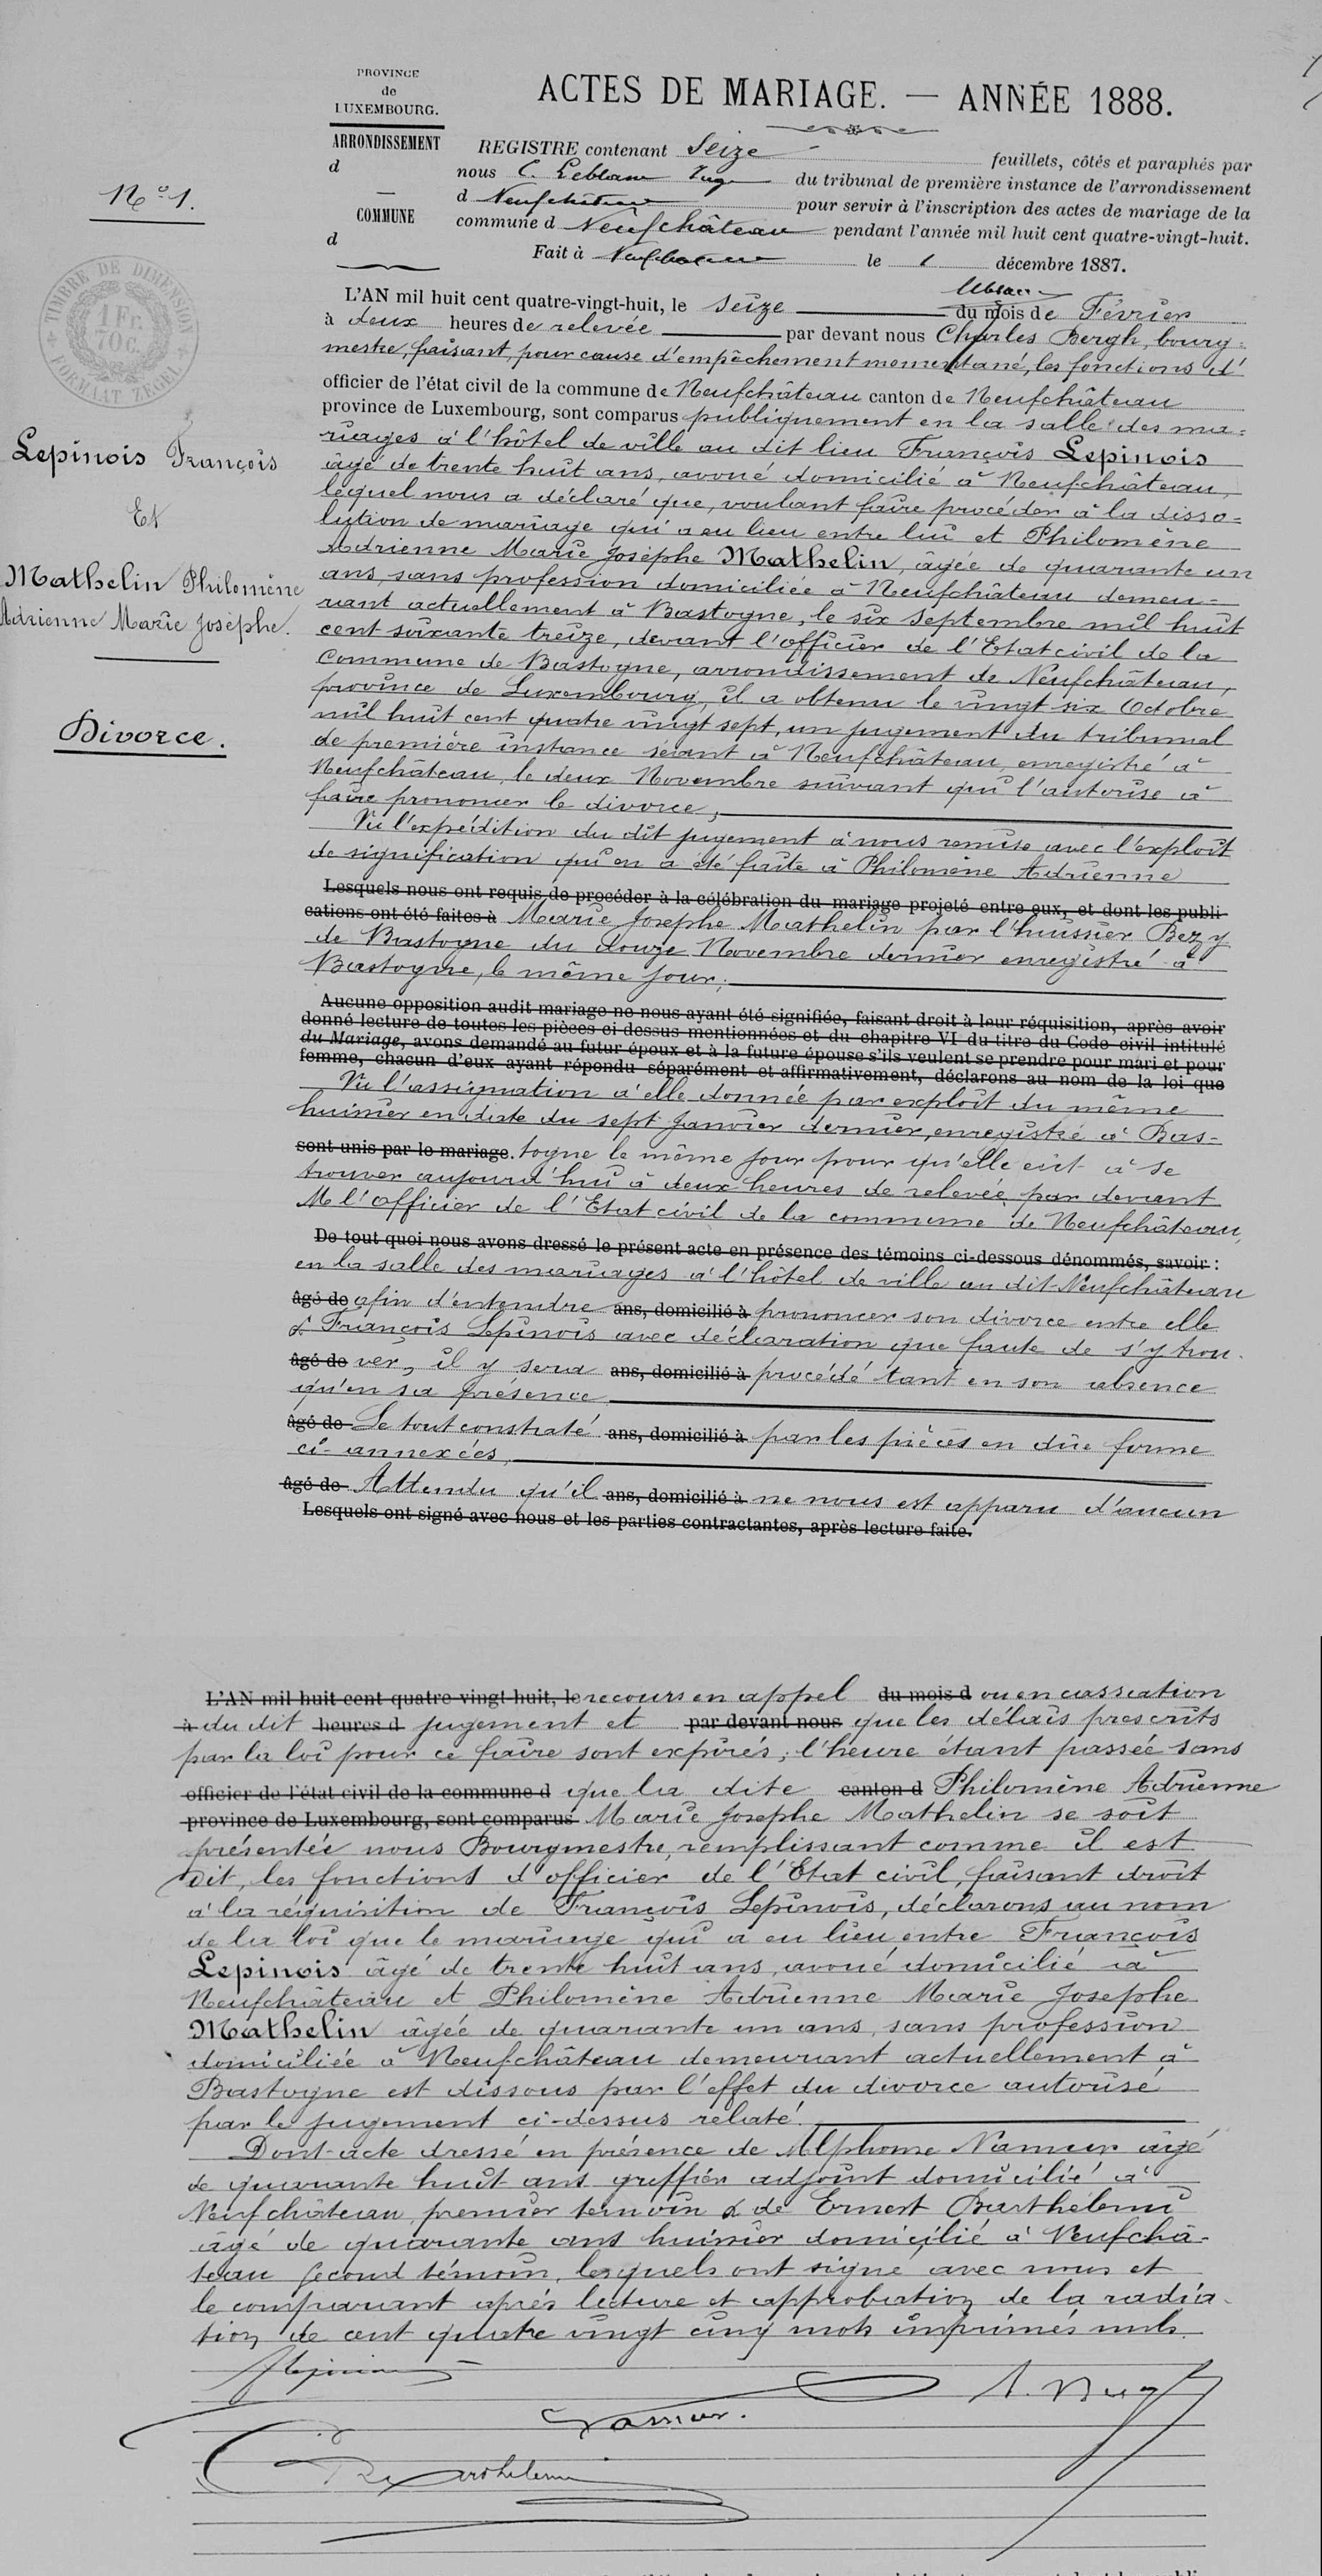 PROVINCE
de
LUXEMBOURG.
ACTES DE MARIAGE. — ANNÉE 1888.
ARRONDISSEMENT
d
COMMUNE
d
REGISTRE contenant Seize feuillets, côtés et paraphés par
nous C. Leblanc Juge du tribunal de première instance de l'arrondissement
d Neufchâteau pour servir à l'inscription des actes de mariage de la
commune d Neufchâteau pendant l'année mil huit cent quatre-vingt-huit.
Fait à Neufchateau le 1 décembre 1887.
Leblanc
Nº 1.
TIMBRE DE DIMENSION
1 Fr.
70 c.
FORMAAT ZEGEL
Lepinois François
Et
Mathelin Philomène
Adrienne Marie Josèphe.
Divorce.
L'AN mil huit cent quatre-vingt-huit, le seize du mois de Février
à deux heures de relevée par devant nous Charles Bergh, bourg=
mestre, faisant, pour cause d'empêchement momentané, les fonctions d'
officier de l'état civil de la commune de Neufchâteau canton de Neufchâteau
province de Luxembourg, sont comparus publiquement en la salle des ma=
riages à l'hôtel de ville au dit lieu François Lepinois
âgé de trente huit ans, avoué domicilié à Neufchâteau,
lequel nous a déclaré que, voulant faire procéder à la disso=
lution de mariage qui a eu lieu entre lui et Philomène
Adrienne Marie Josèphe Mathelin, âgée de quarante un
ans, sans profession domiciliée à Neufchâteau demeu=
rant actuellement à Bastogne, le six septembre mil huit
cent soixante treize, devant l'officier de l'Etat civil de la
Commune de Bastogne, arrondissement de Neufchâteau,
province de Luxembourg, il a obtenu le vingt six Octobre
mil huit cent quatre vingt sept, un jugement du tribunal
de première instance séant à Neufchâteau, enregistré à
Neufchâteau, le deux Novembre suivant qui l'autorise à
faire prononcer le divorce,
Vu l'expédition du dit jugement à nous remise avec l'exploit
de signification qui en a été faite à Philomène Adrienne
Lesquels nous ont requis de procéder à la célébration du mariage projeté entre eux, et dont les publi-
cations ont été faites à Marie Josephe Mathelin par l'huissier Bezy
de Bastogne du douze Novembre dernier enregistré à
Bastogne, le même jour;
Aucune opposition audit mariage ne nous ayant été signifiée, faisant droit à leur réquisition, après avoir
donné lecture de toutes les pièces ci-dessus mentionnées et du chapitre VI du titre du Code civil intitulé
du Mariage, avons demandé au futur époux et à la future épouse s'ils veulent se prendre pour mari et pour
femme, chacun d'eux ayant répondu séparément et affirmativement, déclarons au nom de la loi que
Vu l'assignation à elle donnée par exploit du même
huissier en date du sept Janvier dernier, enregistré à Bas-
sont unis par le mariage. togne le même jour pour qu'elle eût à se
trouver aujourd'hui à deux heures de relevée par devant
M l'Officier de l'Etat civil de la commune de Neufchâteau,
De tout quoi nous avons dressé le présent acte en présence des témoins ci-dessous dénommés, savoir :
en la salle des mariages à l'hôtel de ville au dit Neufchâteau
âgé de afin d'entendre ans, domicilié à prononcer son divorce entre elle
& François Lepinois avec déclaration que faute de s'y trou-
âgé de ver, il y sera ans, domicilié à procédé tant en son absence
qu'en sa présence
âgé de Le tout constaté ans, domicilié à par les pièces en dûe forme
ci-annexées,
âgé de Attendu qu'il ans, domicilié à ne nous est apparu d'aucun
Lesquels ont signé avec nous et les parties contractantes, après lecture faite.
L'AN mil huit cent quatre-vingt-huit, le recours en appel du mois d ou en cassation
à du dit heures d jugement et par devant nous que les délais prescrits
par la loi pour ce faire sont expirés; l'heure étant passée sans
officier de l'état civil de la commune d que la dite canton d Philomène Adrienne
province de Luxembourg, sont comparus Marie Josephe Mathelin se soit
présentée nous Bourgmestre, remplissant comme il est
dit, les fonctions d'officier de l'Etat civil, faisant droit
à la réquisition de François Lepinois, déclarons au nom
de la loi que le mariage qui a eu lieu entre François
Lepinois âgé de trente huit ans, avoué domicilié à
Neufchâteau et Philomène Adrienne Marie Josephe
Mathelin âgée de quarante un ans, sans profession
domiciliée à Neufchâteau demeurant actuellement à
Bastogne est dissous par l'effet du divorce autorisé
par le jugement ci-dessus relaté.
Dont-acte dressé en présence de Alphonse Namur âgé
de quarante huit ans greffier adjoint domicilié à
Neufchâteau, premier témoin & de Ernest Barthélemi
âgé de quarante ans huissier domicilié à Neufchâ-
teau second témoin, lesquels ont signé avec nous et
le comparant après lecture et approbation de la radia-
tion de cent quatre vingt cinq mots imprimés nuls.
Namur.
Barthelemi